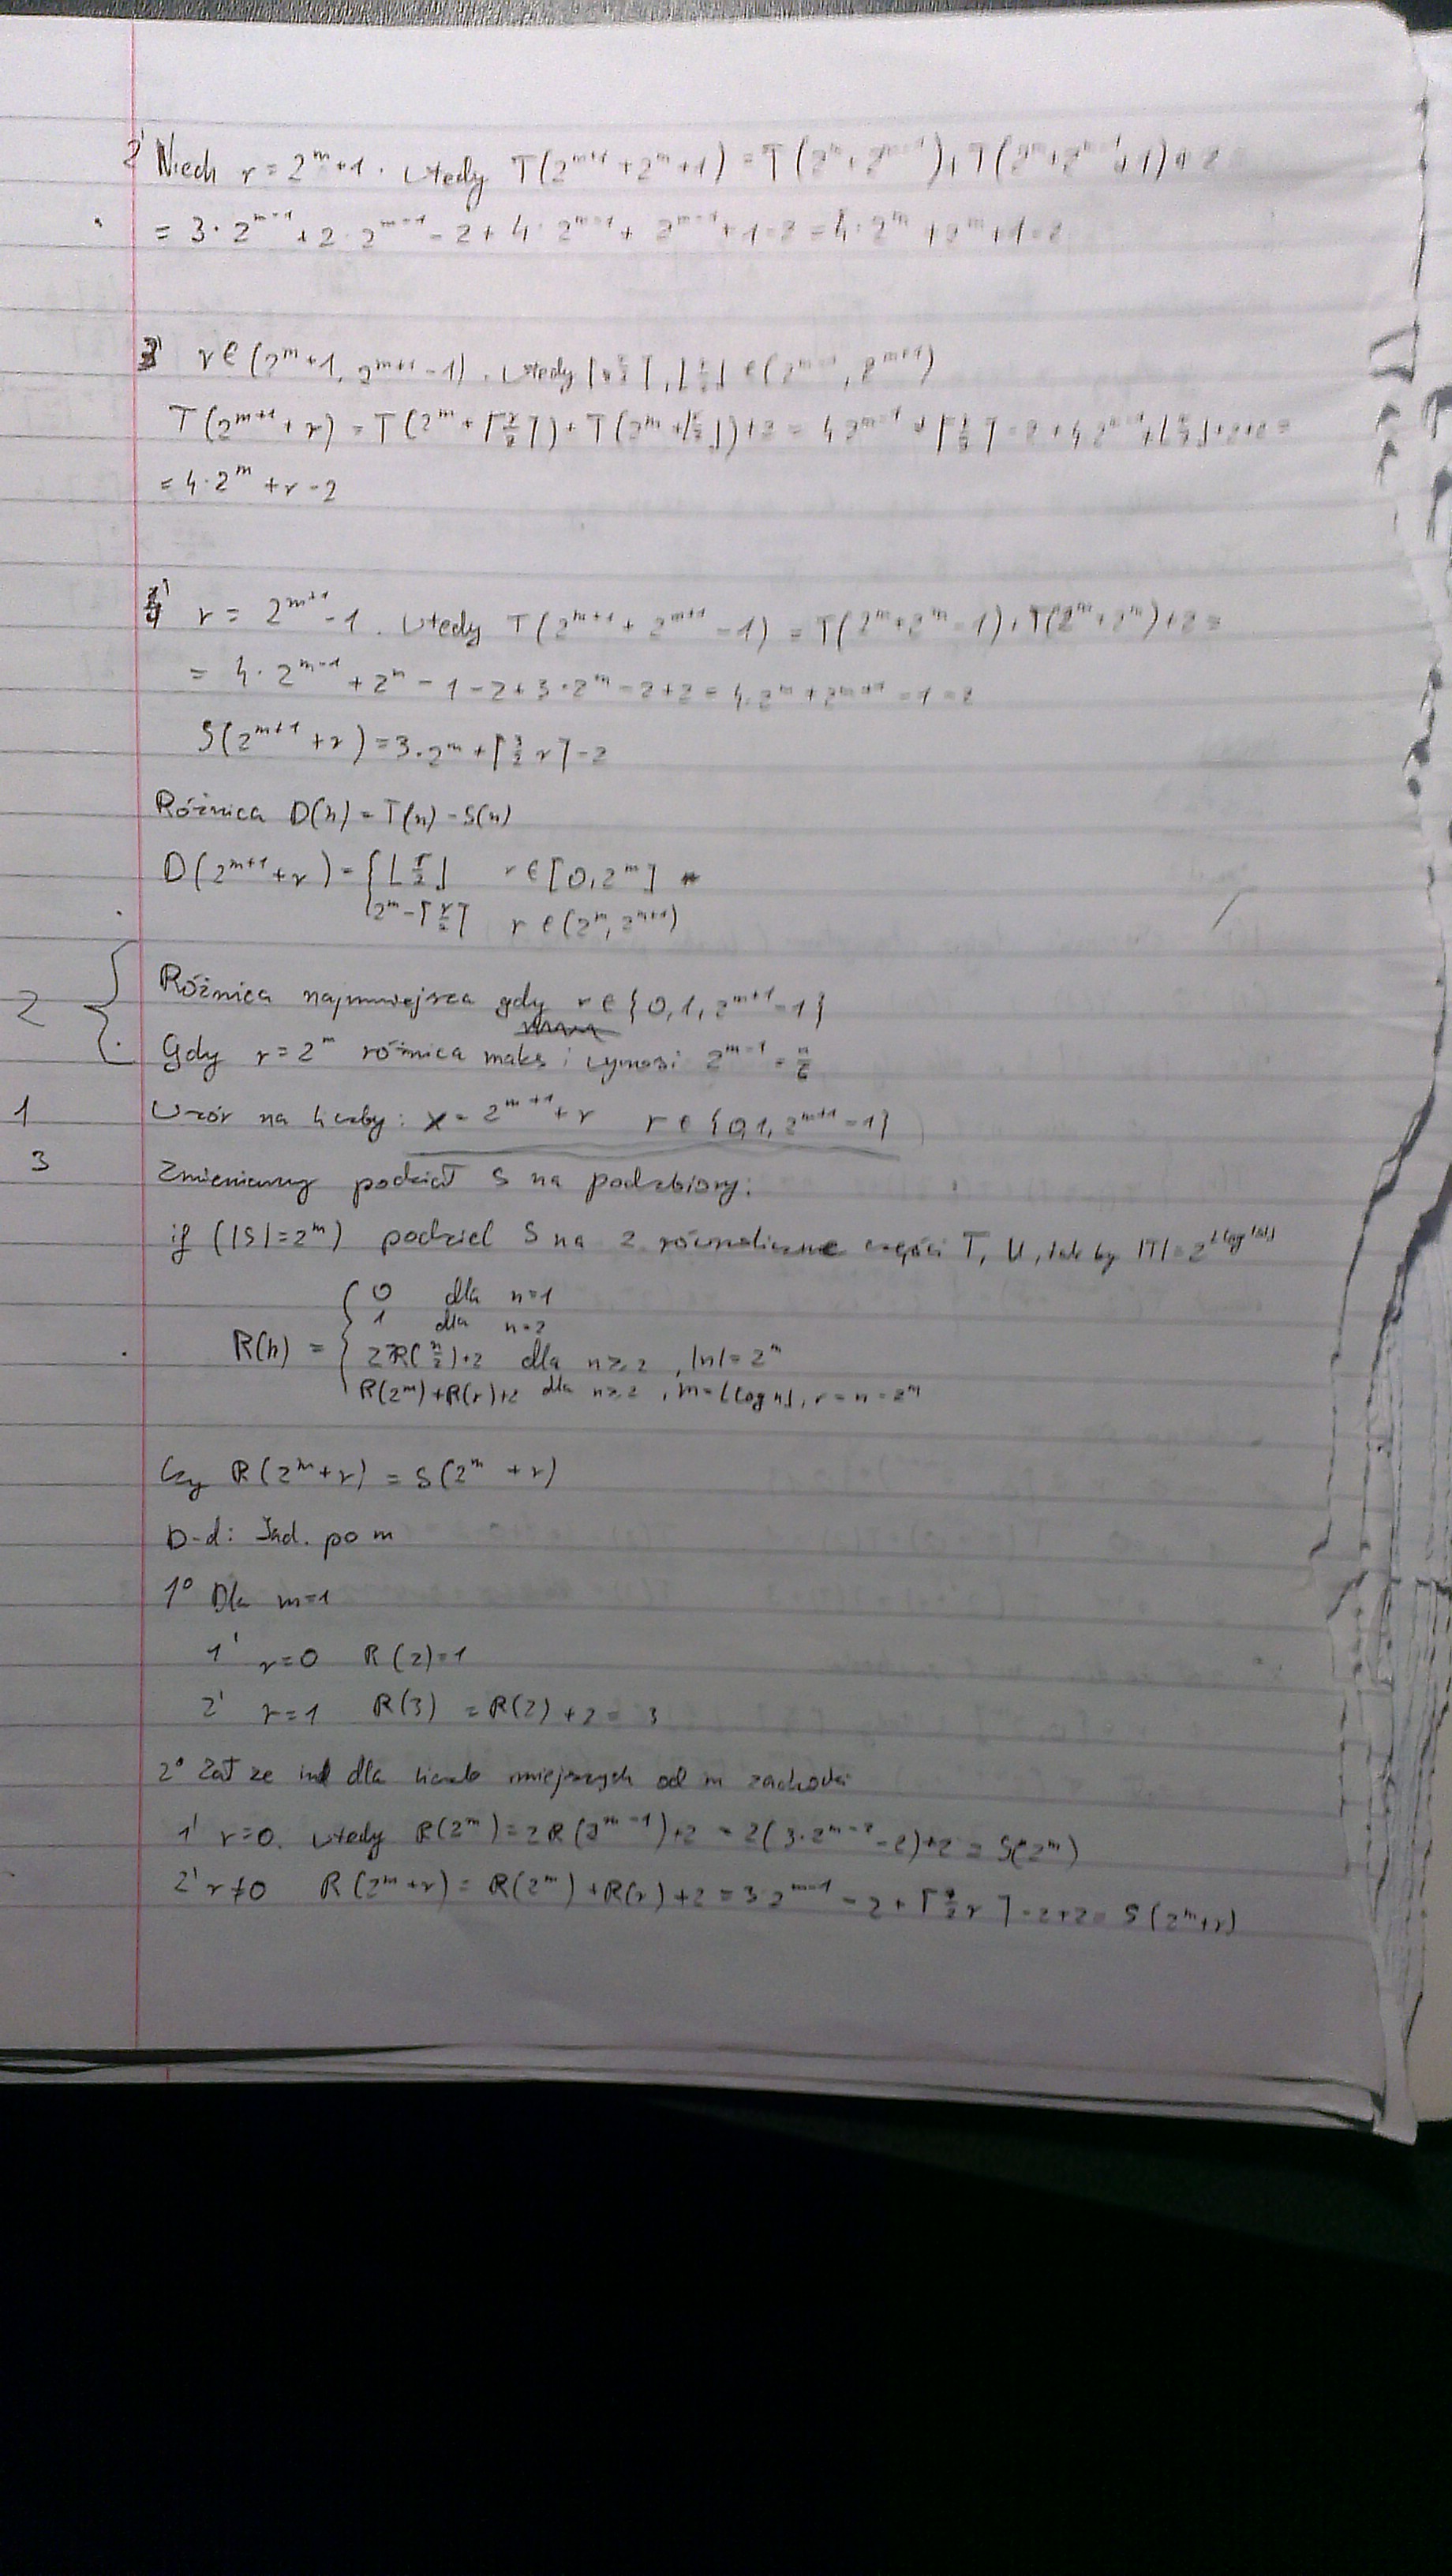 2' Niech r = 2^m + 1. Wtedy T(2^{m+1} + 2^m + 1) = T(2^m + 2^{m-1}) + T(2^m + 2^{m-1} + 1) + 2 =
= 3·2^{m-1} + 2·2^{m-1} - 2 + 4·2^{m-1} + 2^{m-1} + 1 - 2 = 4·2^m + 2^m + 1 - 2
3' r ∈ (2^m+1, 2^{m+1}-1). Wtedy ⌈r/2⌉, ⌊r/2⌋ ∈ (2^{m-1}, 2^{m+1})
T(2^{m+1} + r) = T(2^m + ⌈r/2⌉) + T(2^m + ⌊r/2⌋) + 2 = 4·2^{m-1} + ⌈r/2⌉ - 2 + 4·2^{m-1} + ⌊r/2⌋ + 2 + 2 =
= 4·2^m + r - 2
4' r = 2^{m+1} - 1. Wtedy T(2^{m+1} + 2^{m+1} - 1) = T(2^m + 2^m - 1) + T(2^m + 2^m) + 2 =
= 4·2^{m-1} + 2^m - 1 - 2 + 3·2^m - 2 + 2 = 4·2^m + 2^{m+1} - 1 - 2
S(2^{m+1} + r) = 3·2^m + ⌈3/2 r⌉ - 2
Różnica D(n) = T(n) - S(n)
D(2^{m+1} + r) = { ⌊r/2⌋ r ∈ [0, 2^m]
2^m - ⌈r/2⌉ r ∈ (2^m, 2^{m+1})
2 { Różnica najmniejsza gdy r ∈ {0, 1, 2^{m+1} - 1}
Gdy r = 2^m różnica maks i wynosi 2^{m-1} = n/6
1 Wzór na liczby: x = 2^{m+1} + r r ∈ {0, 1, 2^{m+1} - 1}
3 Zmieniamy podział S na podzbiory:
if (|S| = 2^m) podziel S na 2 równoliczne części T, U, tak by |T| = 2^{⌊log|S|⌋}
R(n) = { 0 dla n=1
1 dla n=2
2R(n/2)+2 dla n≥2, |n| = 2^m
R(2^m)+R(r)+2 dla n≥2, m=⌊log n⌋, r = n - 2^m
Czy R(2^m + r) = S(2^m + r)
D-d: Ind. po m
1° Dla m=1
1' r=0 R(2)=1
2' r=1 R(3) = R(2) + 2 = 3
2° Zał że dla liczb mniejszych od m zachodzi
1' r=0. Wtedy R(2^m) = 2R(2^{m-1}) + 2 = 2(3·2^{m-2} - 2) + 2 = S(2^m)
2' r≠0 R(2^m + r) = R(2^m) + R(r) + 2 = 3·2^{m-1} - 2 + ⌈3/2 r⌉ - 2 + 2 = S(2^m + r)